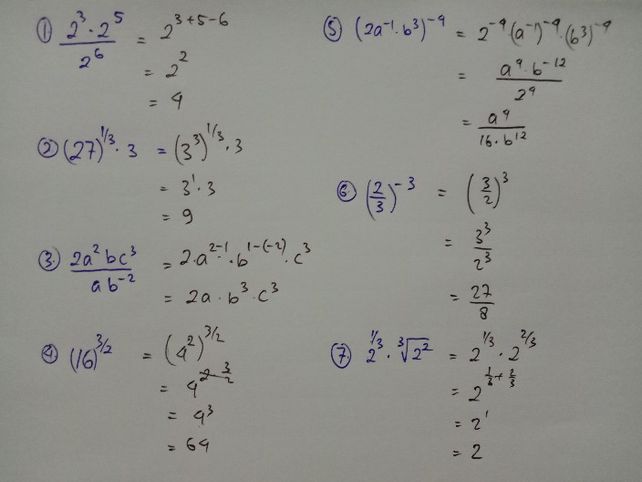 ① 2³·2⁵/2⁶ = 2³⁺⁵⁻⁶
= 2²
= 4
② (27)^1/3 · 3 = (3³)^1/3 · 3
= 3¹·3
= 9
③ 2a²bc³/ab⁻² = 2·a²⁻¹·b^1-(-2)·c³
= 2a·b³·c³
④ (16)^3/2 = (4²)^3/2
= 4^2·3/2
= 4³
= 64
⑤ (2a⁻¹·b³)⁻⁴ = 2⁻⁴·(a⁻¹)⁻⁴·(b³)⁻⁴
= a⁴·b⁻¹²/2⁴
= a⁴/16·b¹²
⑥ (2/3)⁻³ = (3/2)³
= 3³/2³
= 27/8
⑦ 2^1/3 · ³√2² = 2^1/3 · 2^2/3
= 2^1/3+2/3
= 2¹
= 2